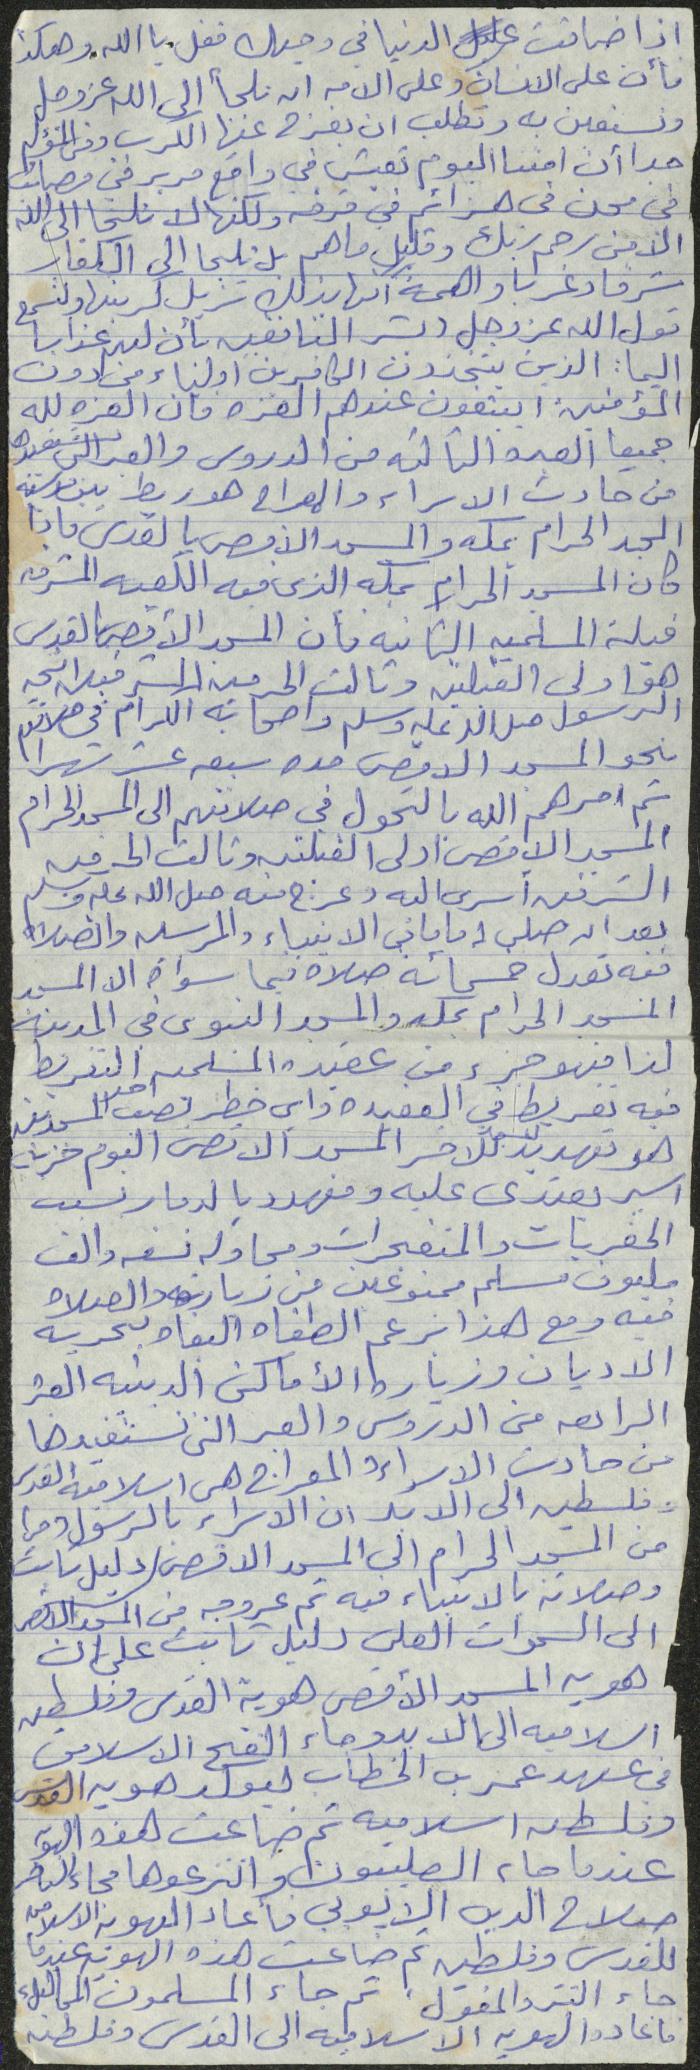 اذا ضاقت عليك الدنيا في وجهك فقل يا الله وهكذا
فأن على الانسان وعلى الامه ان تلجأ الى الله عز وجل
وتستعين به وتطلب ان يفرج عنها الكرب ومن المؤلم
جدا أن امتنا اليوم تعيش في واقع مرير في مصائب
في محن في هزائم في فرقه ولكنها لا تلجا الى الله
الا من رحم ربك وقليل ما هم بل تلجا الى الكفار
شرقا وغربا واهمة أنها بذلك تزيل كربتها ولنسمع
قول الله عز وجل بشر المنافقين بأن لهم عذابا
اليما: الذين يتخذون الكافرين اولياء من دون
المؤمنين: ايبتغون عندهم العزه فان العزه لله
جميعا العبره الثالثه من الدروس والعبر التي نستفيدها
من حادث الاسراء والمعراج هو ربط بين مدينة
المسجد الحرام بمكه والمسجد الاقصى بالقدس فاذا
كان المسجد الحرام بمكه الذى فيه الكعبه المشرفه
قبلة المسلمين الثانيه فأن المسجد الأقصى بالقدس
هو اولى القبلتين وثالث الحرمين الشريفين اتجه
الرسول صلى الله عليه وسلم واصحابه الكرام في صلاتهم
نحو المسجد الاقصى مده سبعه عشر شهرا
ثم امرهم الله بالتحول في صلاتهم الى المسجد الحرام
المسجد الاقصى اولى القبلتين وثالث الحرمين
الشريفين أسرى اليه وعرج منه صلى الله عليه وسلم
بعد ان صلى اماما في الانبياء والمرسلين والصلاة
فيه تعدل خمسمائه صلاه فيما سواه الا المسجد
المسجد الحرام بمكه والمسجد النبوى في المدينة
لذا فهو جزء من عقيده المسلمين التفريط
فيه تفريط في العقيده واي خطر يصيب احد المسجدين
هو تهديد للاخر المسجد الاقصى اليوم حزين
اسير يعتدى عليه ومهدد بالدمار بسبب
الحفريات والمتفجرات ومحاوله نسفه والف
مليون مسلم ممنوعين من زيارته والصلاه
فيه ومع هذا يزعم الطغاه البغاه بحريه
الاديان وزياره الأماكن الدينيه العبر
الرابعه من الدروس والعبر التي نستفيدها
من حادث الاسراء والمعراج هي اسلاميه القدس
وفلسطين الى الابد ان الاسراء بالرسول
من المسجد الحرام الى المسجد الاقصى دليل ثابت
وصلاته بالانبياء فيه ثم عروجه من المسجد الاقصى
الى السموات العلى دليل ثابت على ان
هويه المسجد الأقصى هوية القدس وفلسطين
اسلاميه الى الابد وجاء الفتح الاسلامي
في عهد عمر بن الخطاب ليؤكد هويه القدس
وفلسطين اسلاميه ثم ضاعت هذه الهوية
عندما جاء الصليبيون وانتزعوها فجاء الناصر
صلاح الدين الايوبي فأعاد الهوية الاسلاميه
للقدس وفلسطين ثم ضاعت هذه الهويه عندما
جاء التتر والمغول، ثم جاء المسلمون المماليك
فاعادوا الهويه الاسلاميه الى القدس وفلسطين